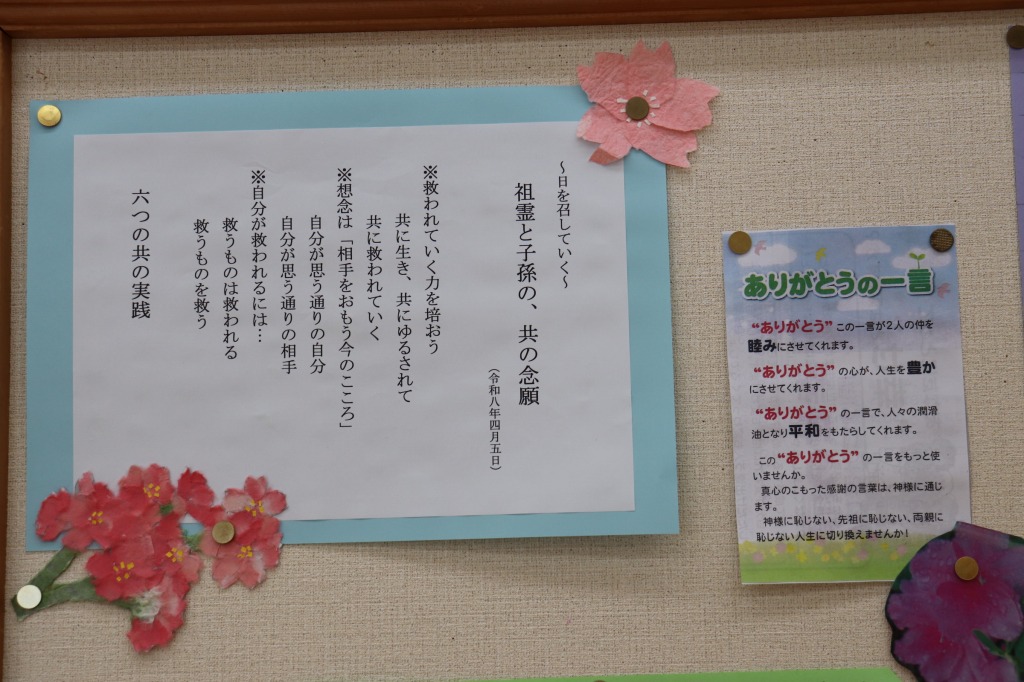 ～日を召していく～
祖霊と子孫の、共の念願
（令和八年四月五日）
※救われていく力を培おう
共に生き、共にゆるされて
共に救われていく
※想念は「相手をおもう今のこころ」
自分が思う通りの自分
自分が思う通りの相手
※自分が救われるには…
救うものは救われる
救うものを救う
六つの共の実践
ありがとうの一言
“ありがとう” この一言が2人の仲を
睦みにさせてくれます。
“ありがとう” の心が、人生を豊か
にさせてくれます。
“ありがとう” の一言で、人々の潤滑
油となり平和をもたらしてくれます。
この“ありがとう” の一言をもっと使
いませんか。
真心のこもった感謝の言葉は、神様に通じ
ます。
神様に恥じない、先祖に恥じない、両親に
恥じない人生に切り換えませんか！